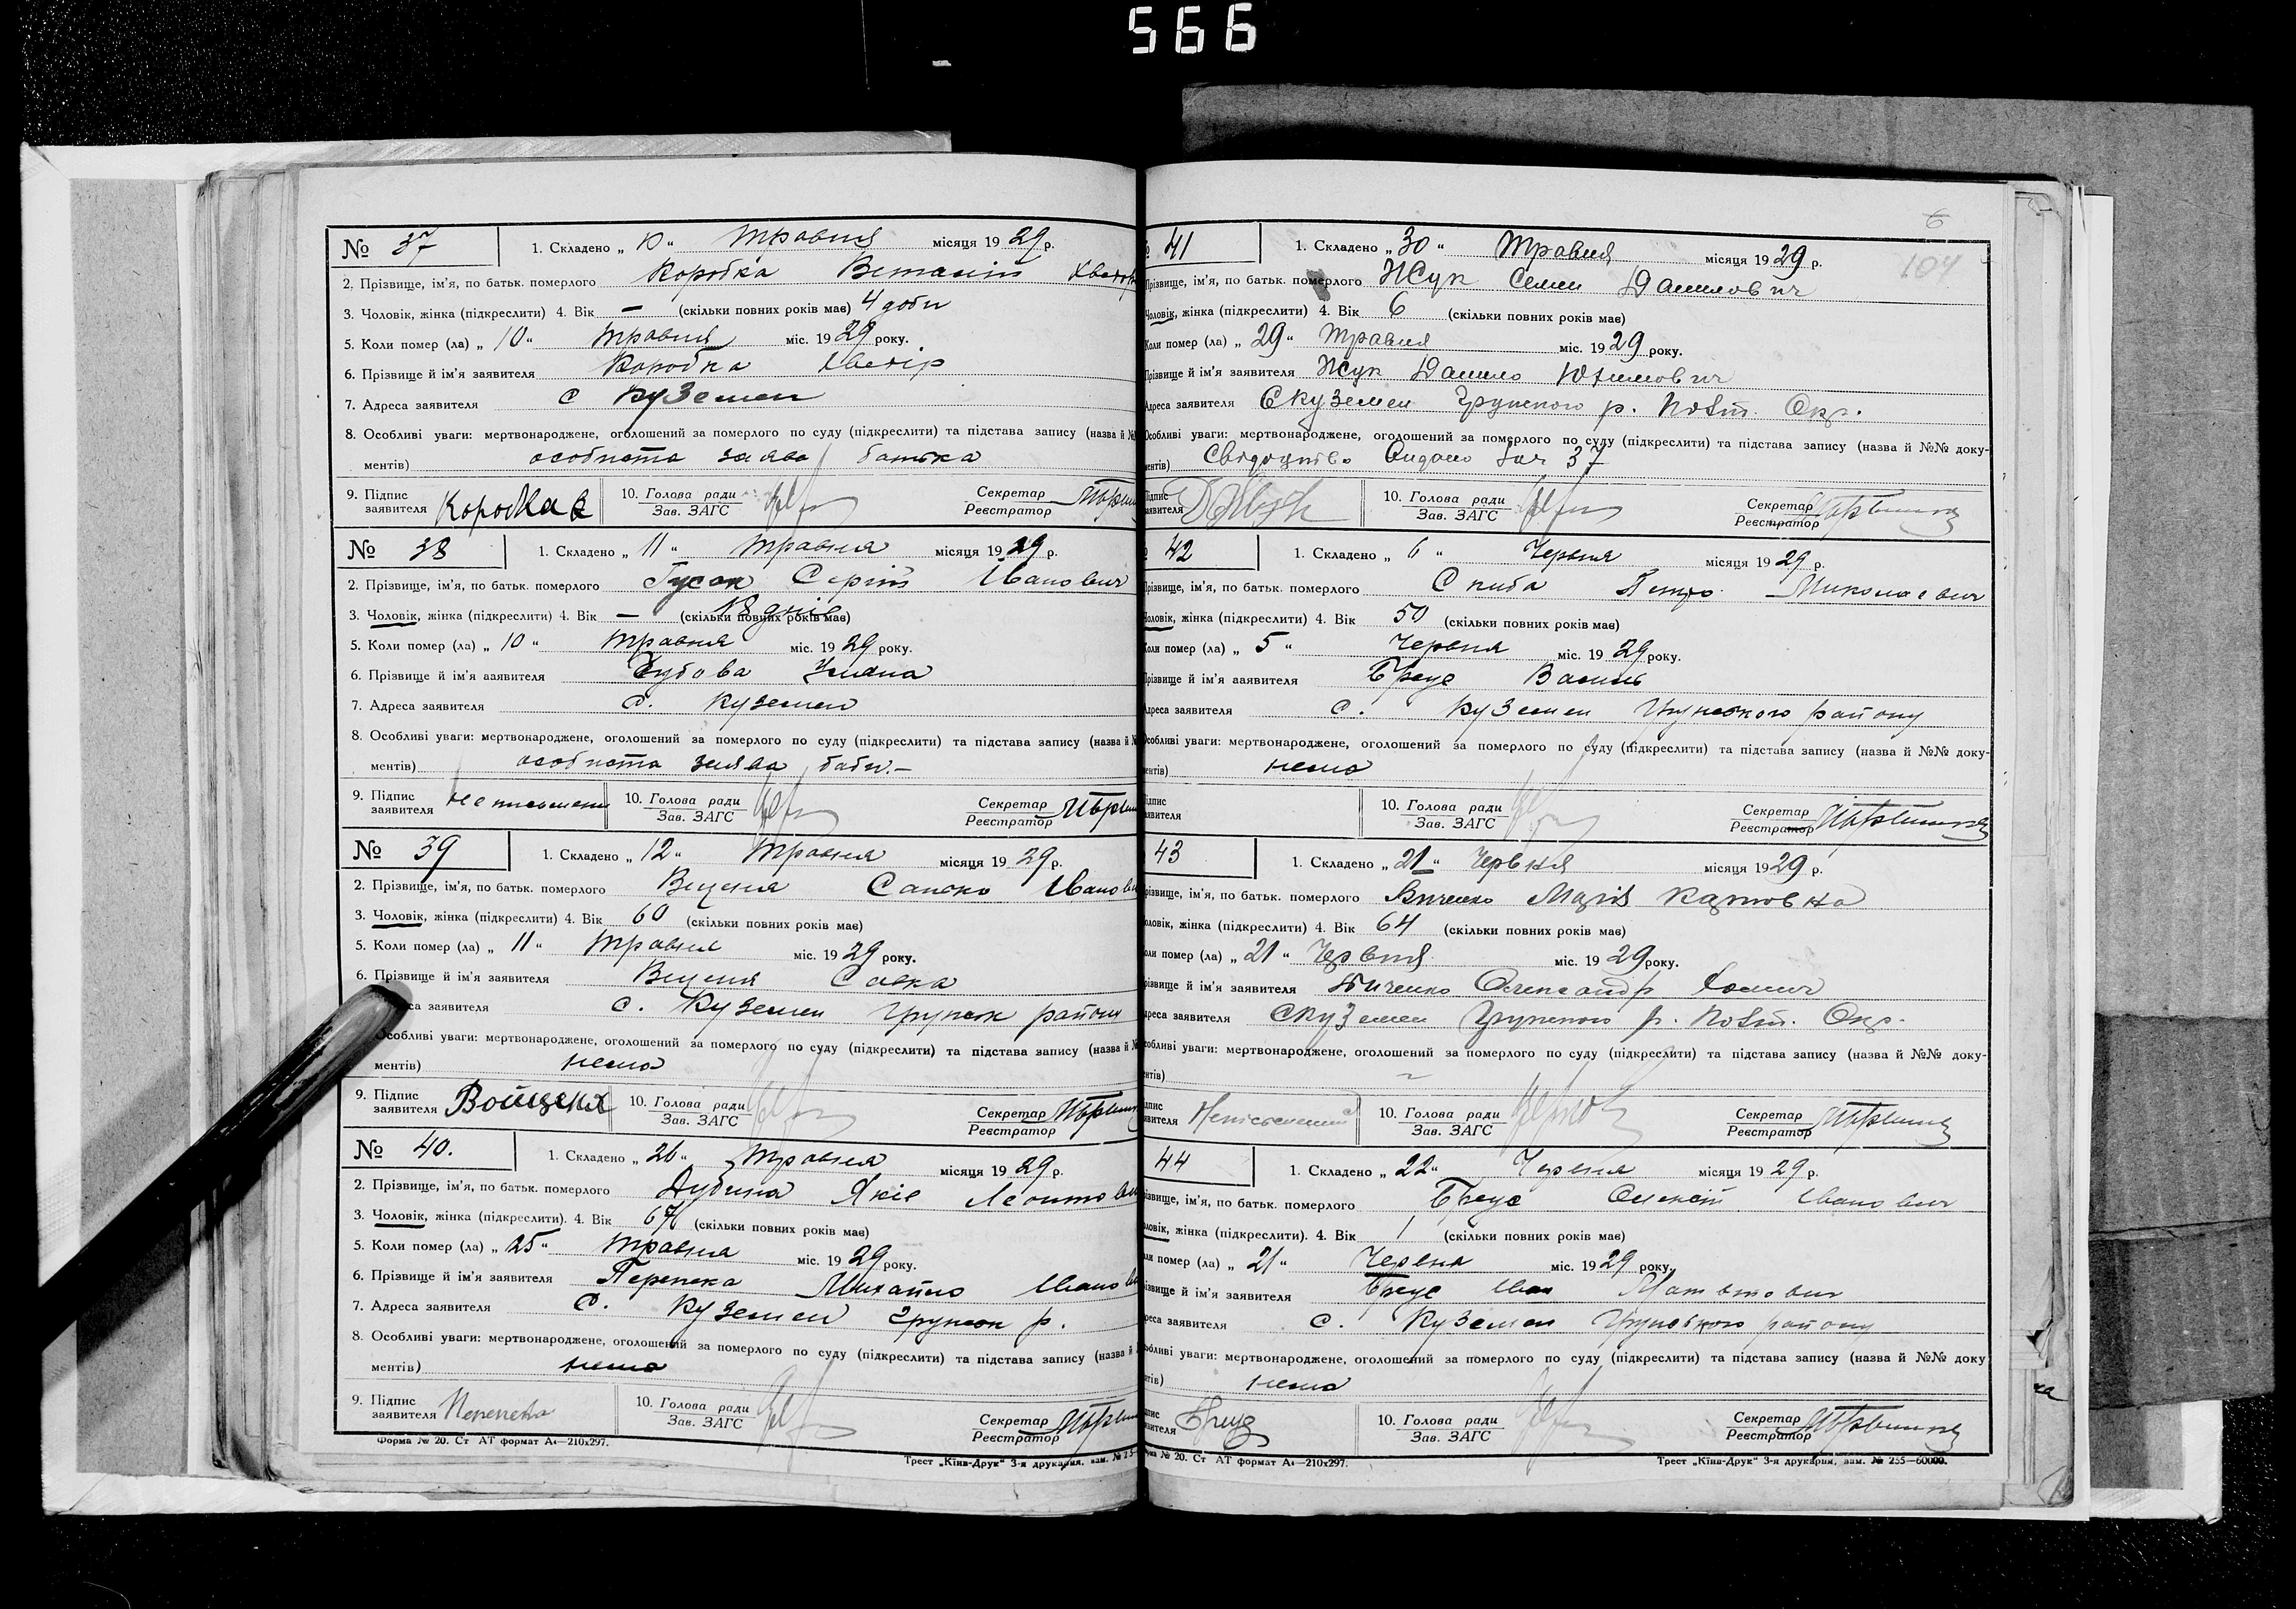 566
№ 37
1. Складено „ 10 “ травня місяця 1929 р.
2. Прізвище, ім'я, по батьк. померлого Коробка Віталій
3. Чоловік, жінка (підкреслити) 4. Вік — (скільки повних років має) 4 доби
5. Коли помер (ла) „ 10 “ травня міс. 1929 року.
6. Прізвище й ім'я заявителя Коробка Хведір
7. Адреса заявителя с Куземен
8. Особливі уваги: мертвонароджене, оголошений за померлого по суду (підкреслити) та підстава запису (назва й
ментів) особиста заява батька
9. Підпис заявителя
10. Голова ради
Зав. ЗАГС
Секретар
Реєстратор
№ 38
1. Складено „ 11 “ травня місяця 1929 р.
2. Прізвище, ім'я, по батьк. померлого Гусак Сергій Іванович
3. Чоловік, жінка (підкреслити) 4. Вік — (скільки повних років має) 18 днів
5. Коли помер (ла) „ 10 “ травня міс. 1929 року.
6. Прізвище й ім'я заявителя Уляна
7. Адреса заявителя с. Куземен
8. Особливі уваги: мертвонароджене, оголошений за померлого по суду (підкреслити) та підстава запису (назва й
ментів) особиста заява баби.—
9. Підпис заявителя
10. Голова ради
Зав. ЗАГС
Секретар
Реєстратор
№ 39
1. Складено „ 12 “ травня місяця 1929 р.
2. Прізвище, ім'я, по батьк. померлого
3. Чоловік, жінка (підкреслити) 4. Вік 60 (скільки повних років має)
5. Коли помер (ла) „ 11 “ травня міс. 1929 року.
6. Прізвище й ім'я заявителя Савка
заявителя с. Куземен Грунськ району
Особливі уваги: мертвонароджене, оголошений за померлого по суду (підкреслити) та підстава запису (назва й
ментів) нема
9. Підпис заявителя
10. Голова ради
Зав. ЗАГС
Секретар
Реєстратор
№ 40.
1. Складено „ 26 “ травня місяця 1929 р.
2. Прізвище, ім'я, по батьк. померлого Дубина Яків
3. Чоловік, жінка (підкреслити). 4. Вік (скільки повних років має)
5. Коли помер (ла) „ 25 “ травня міс. 1929 року.
6. Прізвище й ім'я заявителя Перепека Михайло
7. Адреса заявителя с. Куземен Грунськ р.
8. Особливі уваги: мертвонароджене, оголошений за померлого по суду (підкреслити) та підстава запису (назва й
ментів) нема
9. Підпис заявителя Перепека
10. Голова ради
Зав. ЗАГС
Секретар
Реєстратор
Форма № 20. Ст АТ формат А4—210x297.
Трест „Київ-Друк“ 3-я друкарня, зам. №
6
104
41
1. Складено „ 30 “ травня місяця 1929 р.
Прізвище, ім'я, по батьк. померлого Жук Семен Данилович
Чоловік, жінка (підкреслити) 4. Вік 6 (скільки повних років має)
Коли помер (ла) „ 29 “ травня міс. 1929 року.
Прізвище й ім'я заявителя Жук Данило Юхимович
Адреса заявителя с Куземен Грунського р. Полт. Окр.
Особливі уваги: мертвонароджене, оголошений за померлого по суду (підкреслити) та підстава запису (назва й №№ доку-
ментів) 37
Підпис заявителя
10. Голова ради
Зав. ЗАГС
Секретар
Реєстратор
42
1. Складено „ 6 “ Червня місяця 1929 р.
Прізвище, ім'я, по батьк. померлого Скиба Петро Миколаєвич
Чоловік, жінка (підкреслити) 4. Вік 50 (скільки повних років має)
Коли помер (ла) „ 5 “ Червня міс. 1929 року.
Прізвище й ім'я заявителя Бреус Василь
Адреса заявителя с. Куземен Грунського району
Особливі уваги: мертвонароджене, оголошений за померлого по суду (підкреслити) та підстава запису (назва й №№ доку-
ментів) нема
Підпис заявителя
10. Голова ради
Зав. ЗАГС
Секретар
Реєстратор
43
1. Складено „ 21 “ Червня місяця 1929 р.
Прізвище, ім'я, по батьк. померлого Марія Карповна
Чоловік, жінка (підкреслити) 4. Вік 64 (скільки повних років має)
Коли помер (ла) „ 21 “ Червня міс. 1929 року.
Прізвище й ім'я заявителя Олександр
Адреса заявителя с Куземен Грунського р. Полт. Окр.
Особливі уваги: мертвонароджене, оголошений за померлого по суду (підкреслити) та підстава запису (назва й №№ доку-
ментів)
Підпис заявителя
10. Голова ради
Зав. ЗАГС
Секретар
Реєстратор
44
1. Складено „ 22 “ Червня місяця 1929 р.
Прізвище, ім'я, по батьк. померлого Бреус Олексій Іванович
Чоловік, жінка (підкреслити). 4. Вік 1 (скільки повних років має)
Коли помер (ла) „ 21 “ Червня міс. 1929 року.
Прізвище й ім'я заявителя Бреус Іван
Адреса заявителя с. Куземен Грунського району
Особливі уваги: мертвонароджене, оголошений за померлого по суду (підкреслити) та підстава запису (назва й №№ доку
ментів) нема
Підпис заявителя Бреус
10. Голова ради
Зав. ЗАГС
Секретар
Реєстратор
Форма № 20. Ст АТ формат А4—210x297.
Трест „Київ-Друк“ 3-я друкарня, зам. № 255—60000.